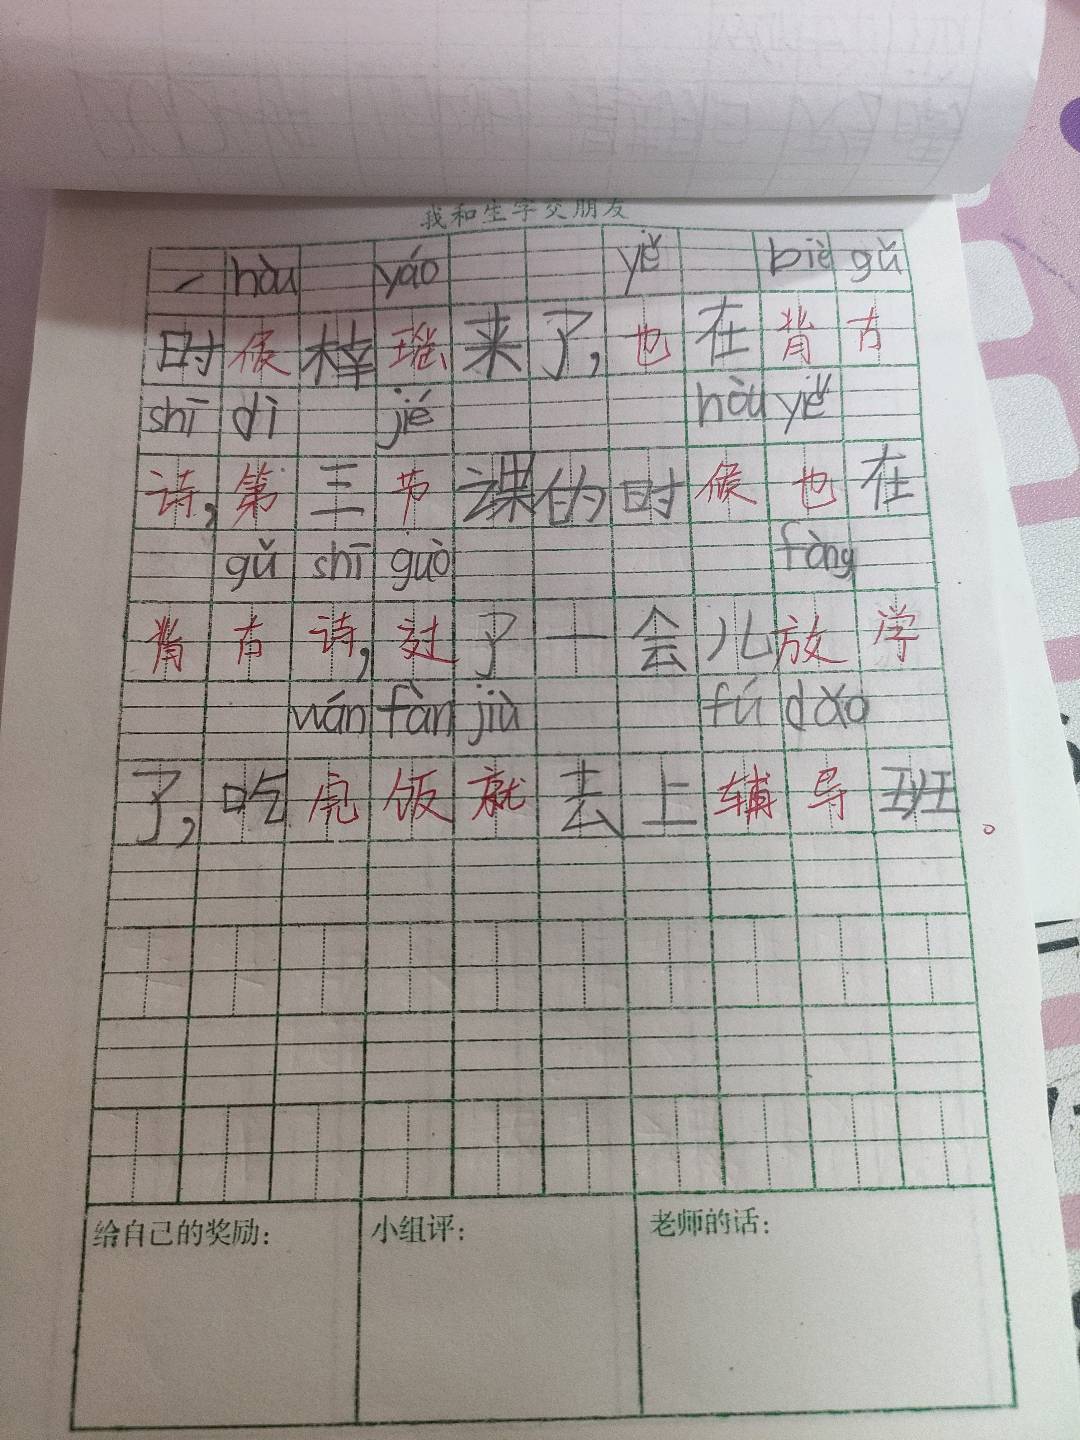 我和生字交朋友
hòu yáo yě biè gǔ
时候梓瑶来了,也在背古
shī dì jié hòu yě
诗,第三节课的时候也在
gǔ shī guò fàng
背古诗,过了一会儿放学
wán fàn jiù fú dǎo
了,吃完饭就去上辅导班。
给自己的奖励: 小组评: 老师的话: